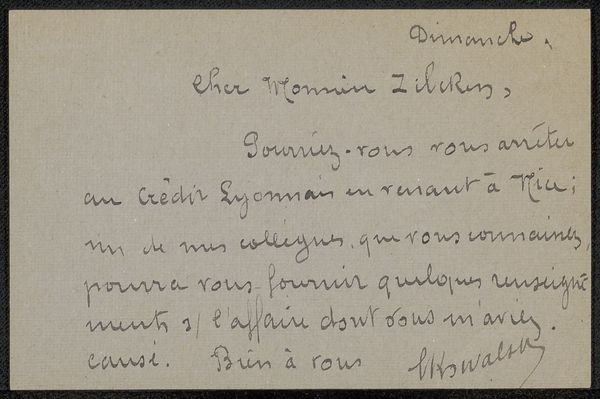 Dimanche,
Cher Monsieur Zilcken,
Pourriez-vous vous arrêter
au Crédit Lyonnais en venant à Nice;
un de mes collègues, que vous connaissez,
pourra vous fournir quelques renseigne-
ments s/ l'affaire dont vous m'aviez
causé. Bien à vous